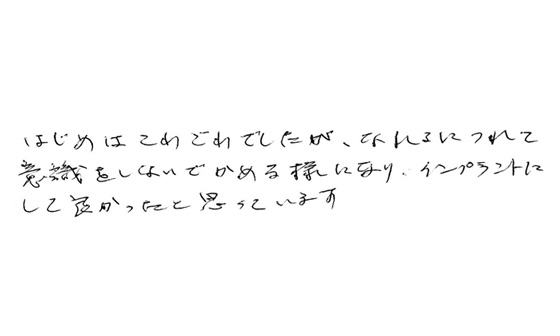 はじめはこわごわでしたが、なれるにつれて
意識をしないでかめる様になり、インプラントに
して良かったと思っています